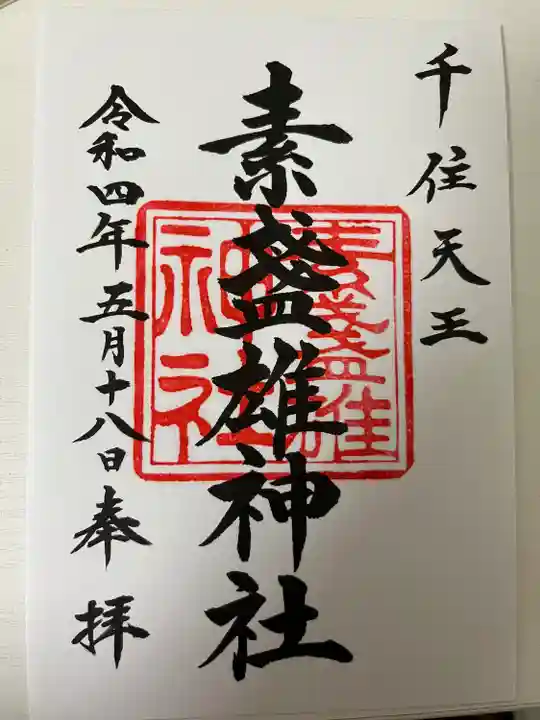 千住天王
素盞雄神社
素盞雄
神社
令和四年五月十八日奉拝